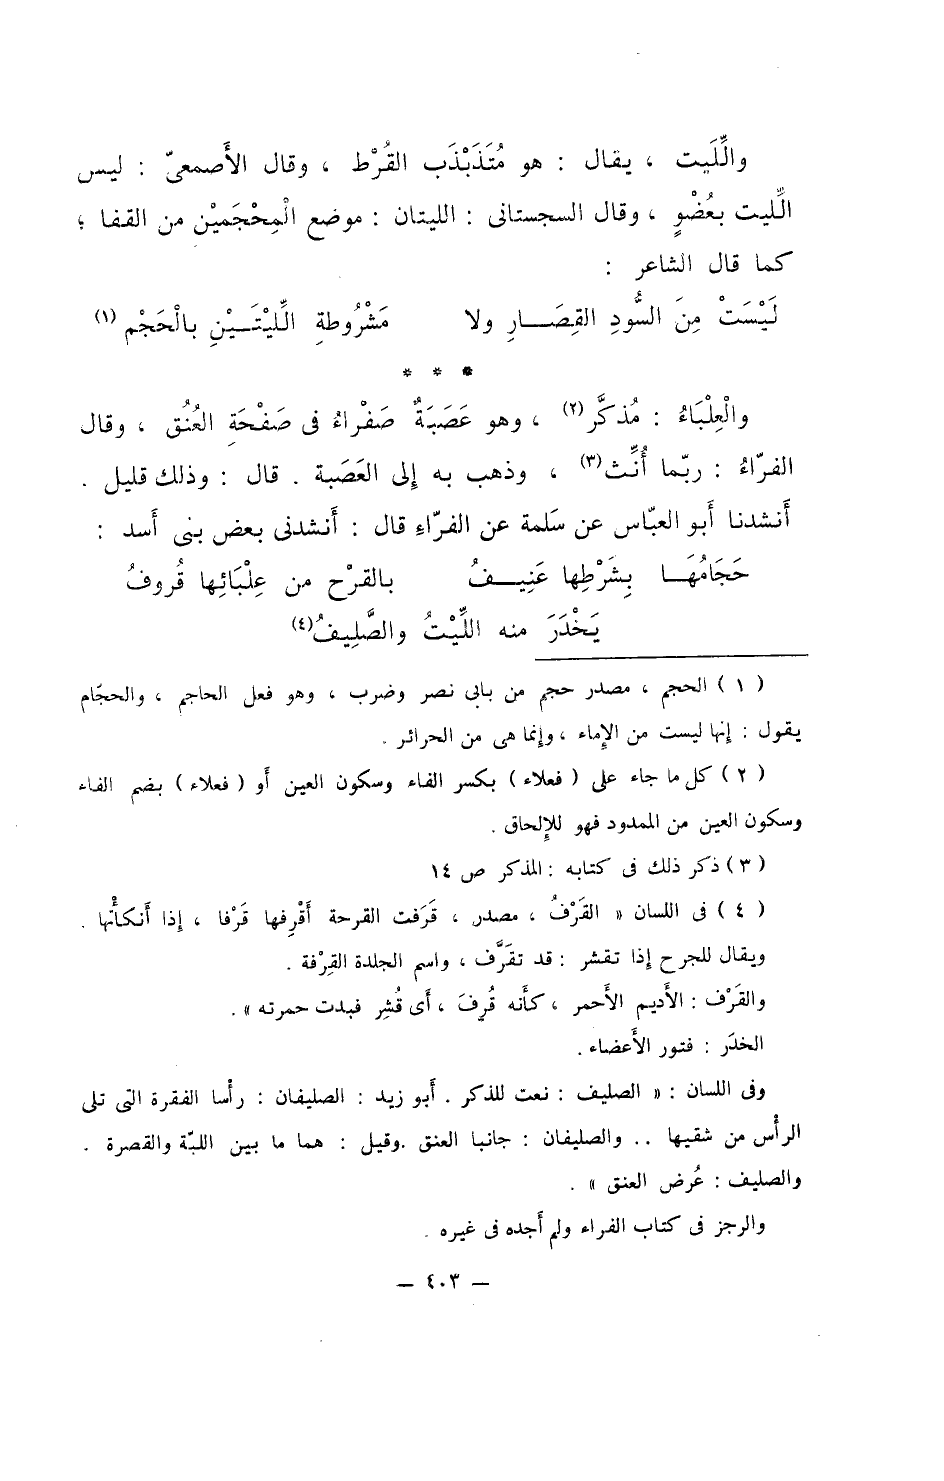 والِّلَيت ، يقال : هو مُتَذَبْذَب القُرْط ، وقال الأَصمعىّ : ليس
الِّليت بعُضْوٍ ، وقال السجستانى : الليتان : موضع الْمِحْجَميْن من القفا ؛
كما قال الشاعر :
لَيْسَتْ مِنَ السُّودِ القِصَــارِ ولا مَشْرُوطةِ الِّليْتَــيْنِ بالْحَجْم (١)
* * *
والْعِلْبَاءُ : مُذكَّر (٢) ، وهو عَصَبَةٌ صَفْراءُ فى صَفْحَةِ العُنُق ، وقال
الفرّاءُ : ربّما أُنِّث (٣) ، وذهب به إلى العَصَبة . قال : وذلك قليل .
أَنشدنا أَبو العبّاس عن سَلمة عن الفرّاءِ قال : أَنشدنى بعض بنى أَسد :
حَجَامُهَـا بِشَرْطِها عَنِيــفُ بالقرْح من عِلْبَائِها قُروفُ
يَخْدَرَ منه اللِّيْتُ والصَّلِيفُ (٤)
( ١ ) الحجم ، مصدر حجم من بابى نصر وضرب ، وهو فعل الحاجم ، والحجّام
يقول : إنها ليست من الإماء ، وإنما هى من الحرائر .
( ٢ ) كل ما جاء على ( فعلاء ) بكسر الفاء وسكون العين أو ( فعلاء ) بضم الفاء
وسكون العين من الممدود فهو للإلحاق .
( ٣ ) ذكر ذلك فى كتابه : المذكر ص ١٤
( ٤ ) فى اللسان « القَرْفُ ، مصدر ، قَرَفت القرحة أقْرِفها قَرْفا ، إذا أَنكأْتها .
ويقال للجرح إذا تقشر : قد تقَرَّف ، واسم الجلدة القِرْفة .
والقَرْف : الأَديم الأَحمر ، كأَنه قُرِفَ ، أَى قُشِر فبدت حمرته » .
الخدَر : فتور الأَعضاء .
وفى اللسان : « الصليف : نعت للذكر . أَبو زيد : الصليفان : رأْسا الفقرة التى تلى
الرأْس من شقيها .. والصليفان : جانبا العنق .وقيل : هما ما بين اللبّة والقصرة .
والصليف : عُرض العنق » .
والرجز فى كتاب الفراء ولم أَجده فى غيره .
— ٤٠٣ —